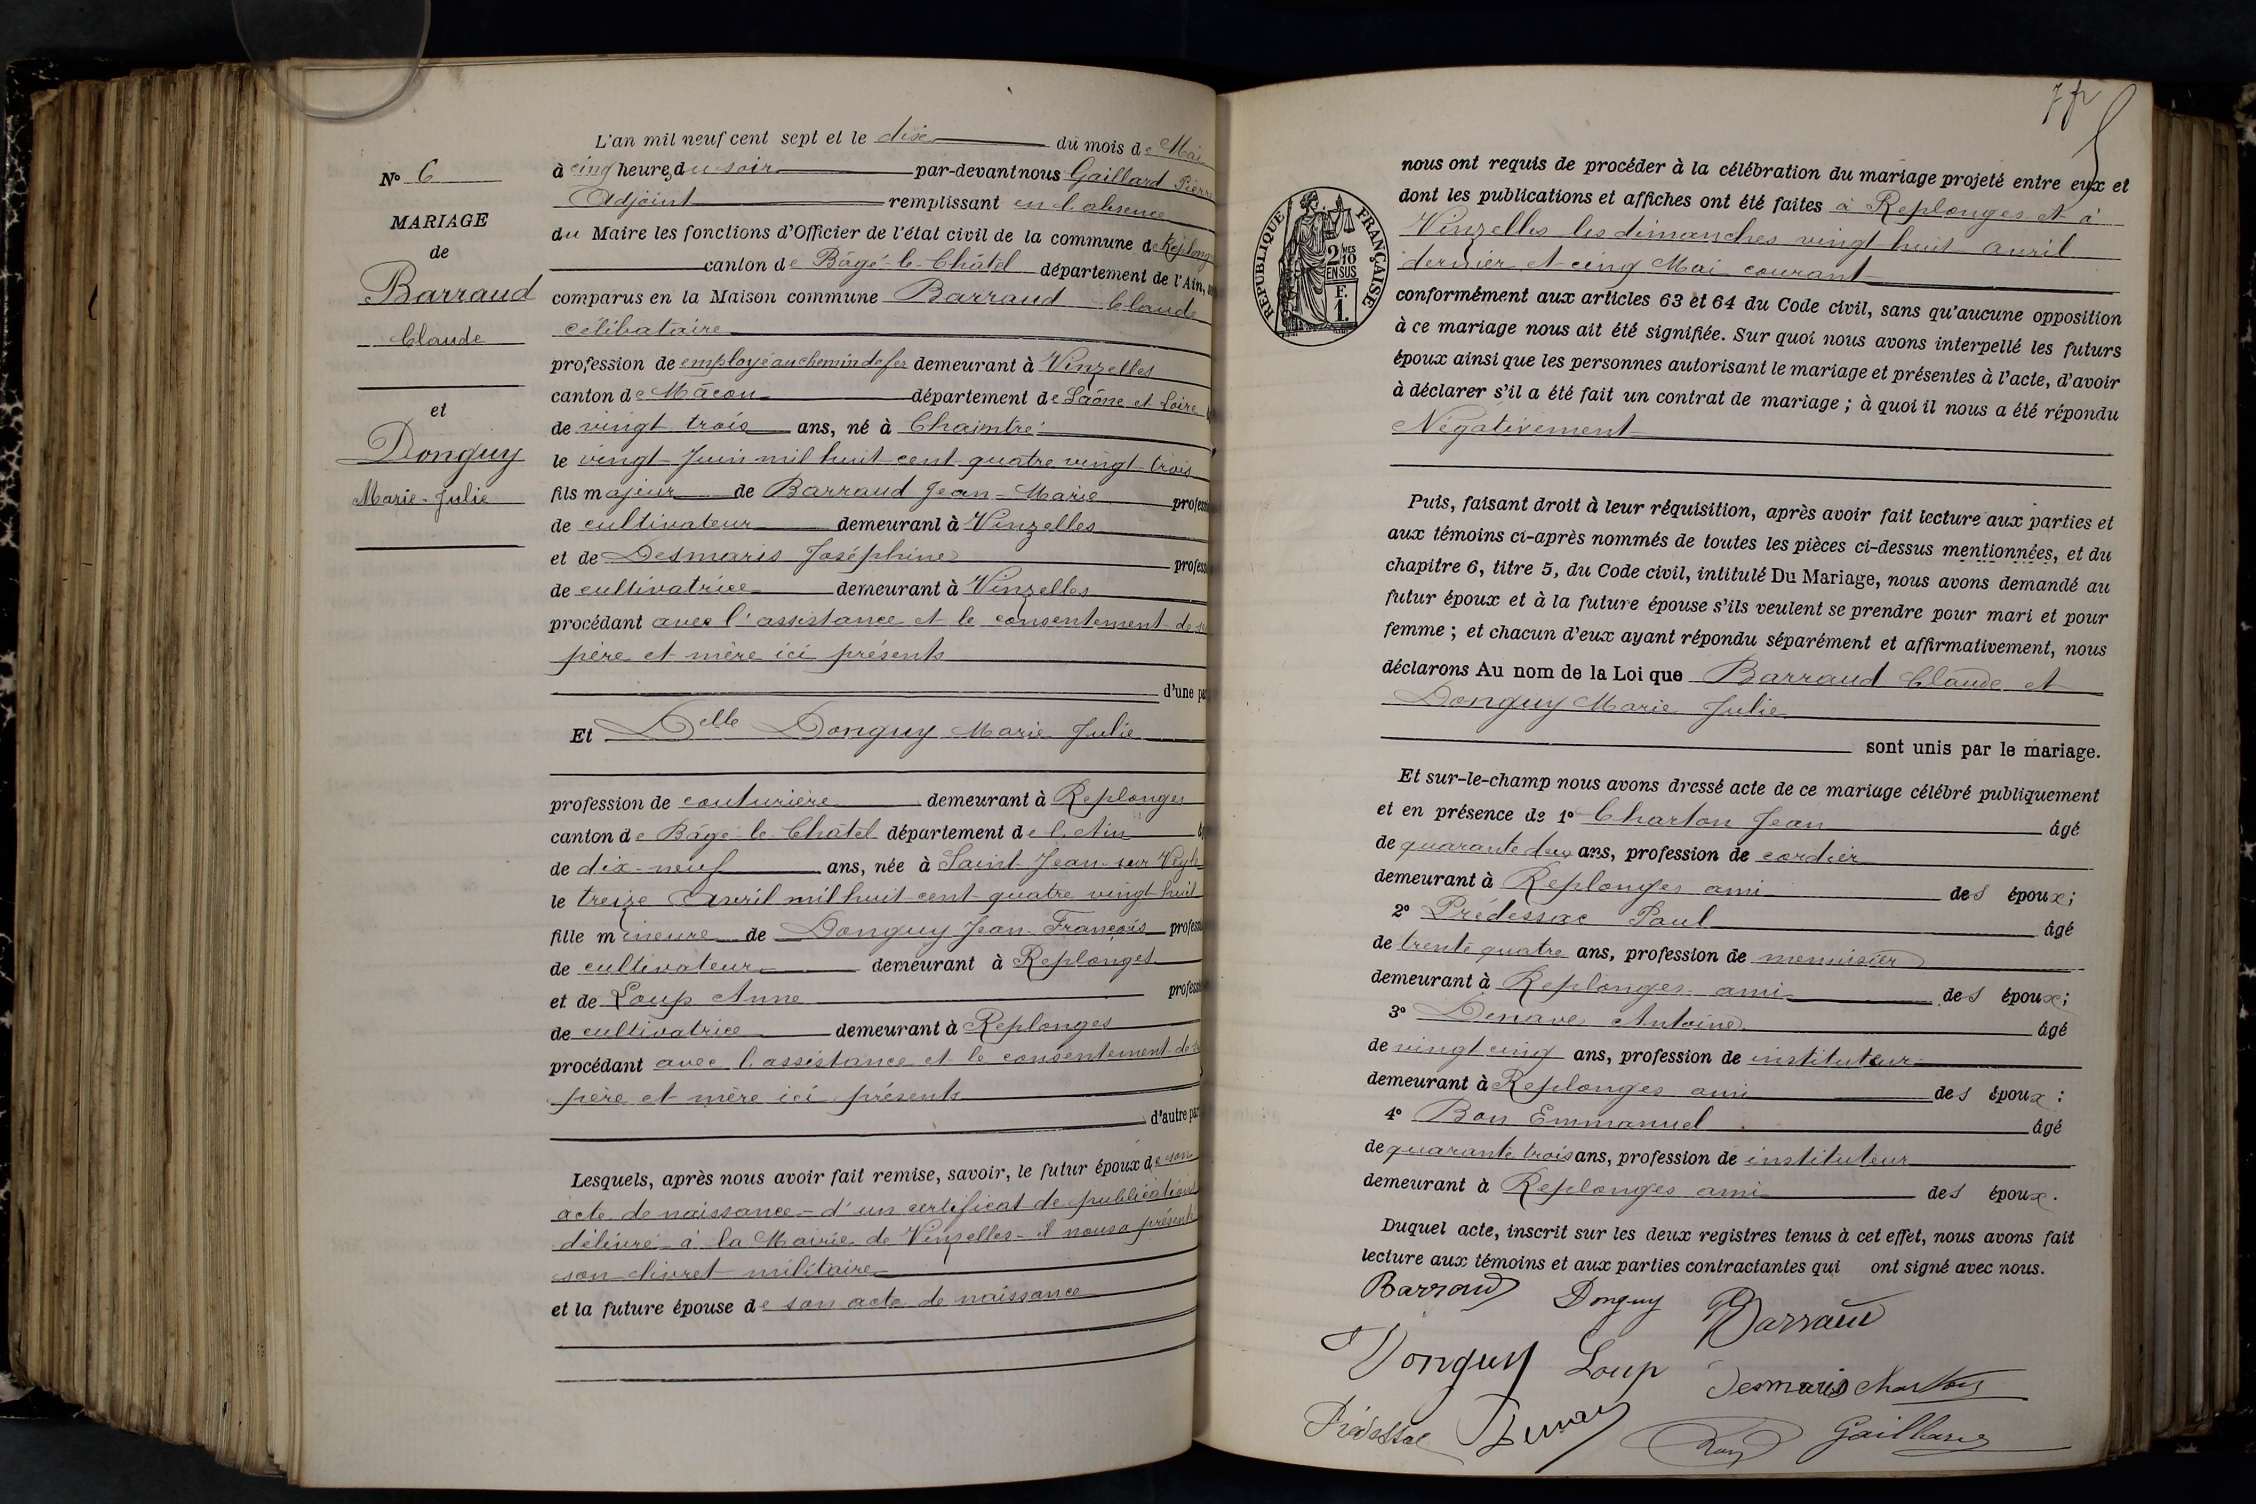 N° 6
MARIAGE
de
Barraud
Claude
et
Donguy
Marie-Julie
L'an mil neuf cent sept et le dix du mois de Mai
à cinq heures du soir par-devant nous Gaillard Pierre
Adjoint remplissant en l'absence
du Maire les fonctions d'Officier de l'état civil de la commune de Replong
canton de Bâgé-le-Châtel département de l'Ain,
comparus en la Maison commune Barraud Claude
célibataire
profession de employé au chemin de fer demeurant à Vinzelles
canton de Mâcon département de Saône et Loire
de vingt trois ans, né à Chaintré
le vingt Juin mil huit cent quatre vingt trois
fils majeur de Barraud Jean-Marie profess
de cultivateur demeurant à Vinzelles
et de Desmaris Joséphine profess
de cultivatrice demeurant à Vinzelles
procédant avec l'assistance et le consentement de s
père et mère ici présents
d'une par
Et Delle Donguy Marie Julie
profession de couturière demeurant à Replonges
canton de Bâgé-le-Châtel département de l'Ain
de dix-neuf ans, née à Saint-Jean-sur Veyle
le treize Avril mil huit cent quatre vingt huit
fille mineure de Donguy Jean-François profess
de cultivateur demeurant à Replonges
et de Loup Anne profess
de cultivatrice demeurant à Replonges
procédant avec l'assistance et le consentement de s
père et mère ici présents
d'autre par
Lesquels, après nous avoir fait remise, savoir, le futur époux de son
acte de naissance - d'un certificat de publications
délivré à la Mairie de Vinzelles - il nous a présenté
son livret militaire
et la future épouse de son acte de naissance
RÉPUBLIQUE FRANÇAISE
2 MES
10
EN SUS
F.
1.
nous ont requis de procéder à la célébration du mariage projeté entre eux et
dont les publications et affiches ont été faites à Replonges et à
Vinzelles les dimanches vingt huit avril
dernier et cinq Mai courant
conformément aux articles 63 et 64 du Code civil, sans qu'aucune opposition
à ce mariage nous ait été signifiée. Sur quoi nous avons interpellé les futurs
époux ainsi que les personnes autorisant le mariage et présentes à l'acte, d'avoir
à déclarer s'il a été fait un contrat de mariage ; à quoi il nous a été répondu
Négativement
Puis, faisant droit à leur réquisition, après avoir fait lecture aux parties et
aux témoins ci-après nommés de toutes les pièces ci-dessus mentionnées, et du
chapitre 6, titre 5, du Code civil, intitulé Du Mariage, nous avons demandé au
futur époux et à la future épouse s'ils veulent se prendre pour mari et pour
femme ; et chacun d'eux ayant répondu séparément et affirmativement, nous
déclarons Au nom de la Loi que Barraud Claude et
Donguy Marie Julie
sont unis par le mariage.
Et sur-le-champ nous avons dressé acte de ce mariage célébré publiquement
et en présence de 1° Charton Jean âgé
de quarante deux ans, profession de cordier
demeurant à Replonges ami des époux ;
2° Prédessac Paul âgé
de trente quatre ans, profession de menuisier
demeurant à Replonges ami des époux ;
3° Denave Antoine âgé
de vingt cinq ans, profession de instituteur
demeurant à Replonges ami des époux :
4° Bon Emmanuel âgé
de quarante trois ans, profession de instituteur
demeurant à Replonges ami des époux.
Duquel acte, inscrit sur les deux registres tenus à cet effet, nous avons fait
lecture aux témoins et aux parties contractantes qui ont signé avec nous.
Barraud Donguy Barraud
Donguy Loup Desmaris Charton
Prédessac Denave Gaillard